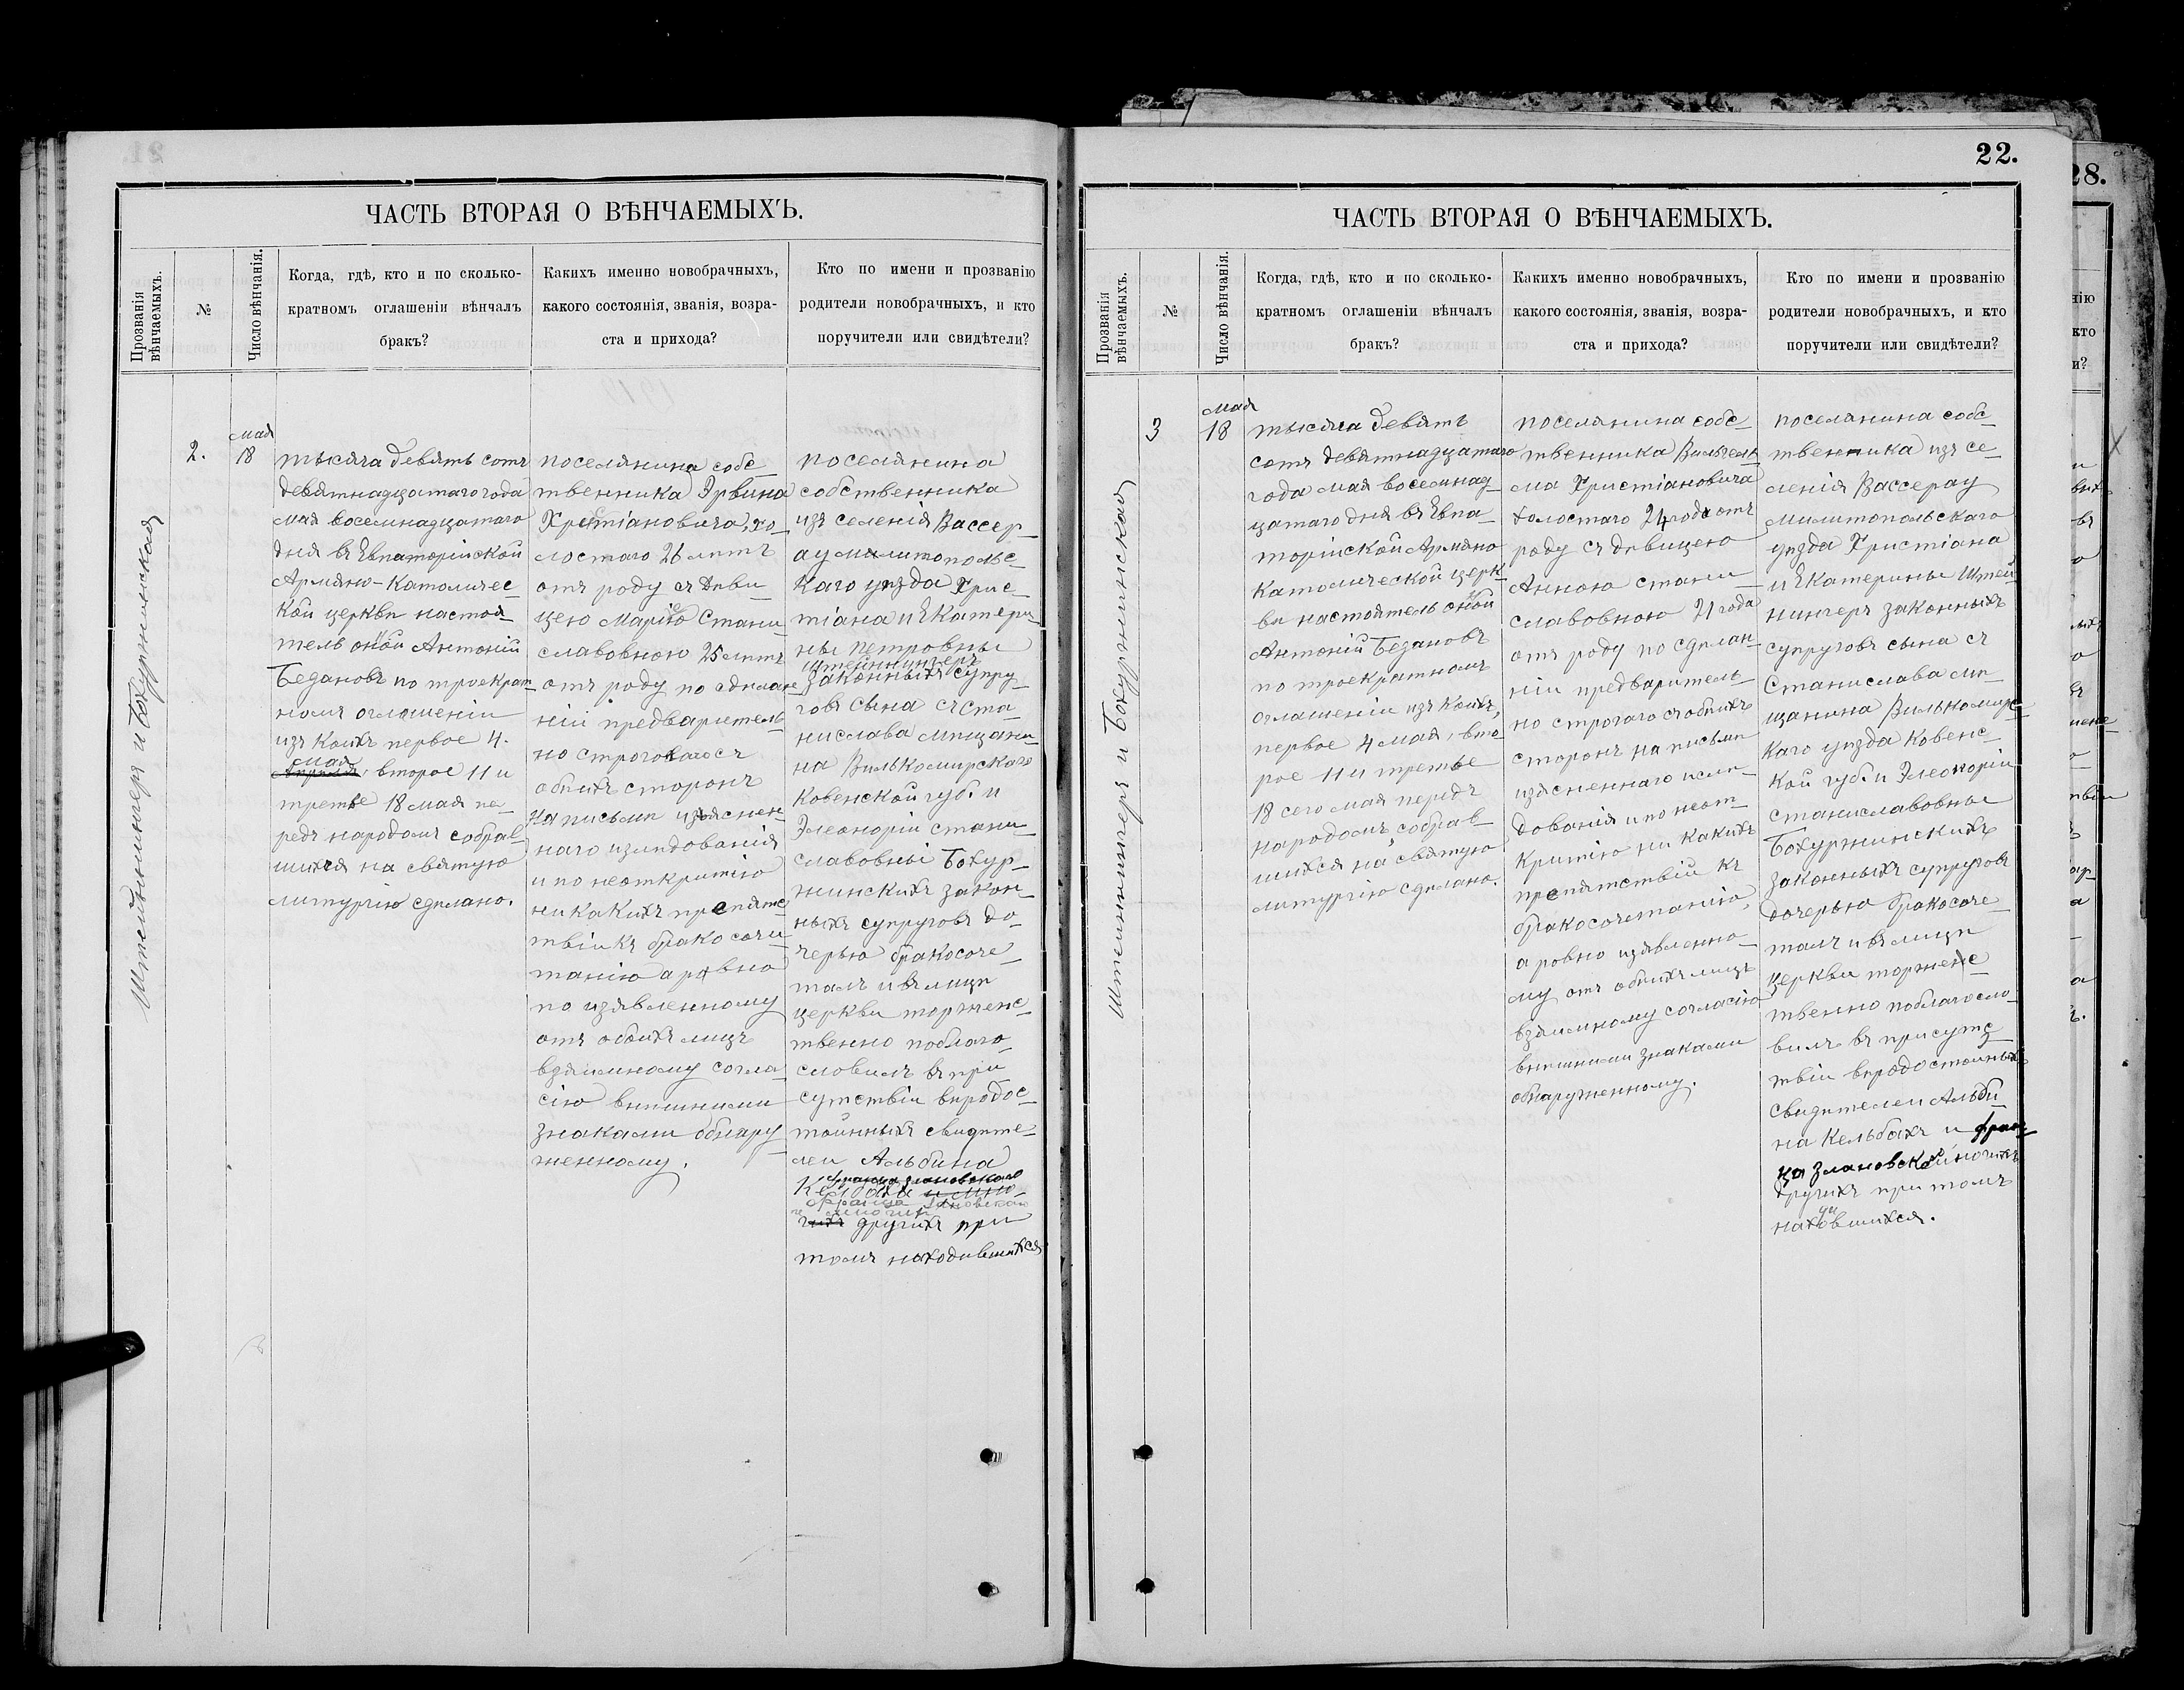 22.
28.
ЧАСТЬ ВТОРАЯ О ВѢНЧАЕМЫХЪ.
Прозванія
вѣнчаемыхъ.
№
Число вѣнчанія.
Когда, гдѣ, кто и по сколько-
кратномъ оглашеніи вѣнчалъ
бракъ?
Какихъ именно новобрачныхъ,
какого состоянія, званія, возра-
ста и прихода?
Кто по имени и прозванію
родители новобрачныхъ, и кто
поручители или свидѣтели?
Штейнингеръ и Бохуржинская
2.
мая
18
тысяча девять сотъ
девятнадцатаго года
мая восемнадцатаго
дня въ Евпаторійской
Армяно-Католичес-
кой церкви настоя-
тель оной Антоній
Безановъ по троекрат-
номъ оглашеніи
изъ коихъ первое 4.
мая
Апреля, второе 11 и
третье 18 мая пе-
редъ народомъ собрав-
шихся на святую
литургію сдѣлано.
поселянина собс-
твенника Эрвина
Христіановича, хо-
лостаго 26 лѣтъ
отъ роду съ дѣви-
цею Маріею Стани-
славовною 25 лѣтъ
отъ роду по сдѣлан-
ніи предваритель-
но строгаго съ
обѣихъ сторонъ
на письмѣ изъяснен-
наго изслѣдованія
и по неоткритію
ни какихъ препятс-
твіи къ бракосоче-
танію а равно
по изъявленному
отъ обѣихъ лицъ
взаимному согла-
сію внѣшними
знаками обнару-
женному.
поселянина
собственника
изъ селенія Вассер-
ау Мелитопольс-
каго уѣзда Хрис-
тіана и Екатери-
ны Петровны
Штейнингеръ
законныхъ супру-
говъ сына съ Ста-
нислава мѣщани-
на Вилькомирскаго
Ковенской губ. и
Элеоноріи Стани-
славовны Бохур-
жинскихъ закон-
ныхъ супруговъ до-
черью бракосоче-
талъ и въ лицѣ
церкви торженс-
твенно поблаго-
словилъ въ при-
сутствіи вѣродос-
тойныхъ свидѣте-
леи Альбина
Кельбахъ и мно-
гихъ другихъ при
томъ находившихся
ЧАСТЬ ВТОРАЯ О ВѢНЧАЕМЫХЪ.
Прозванія
вѣнчаемыхъ.
№
Число вѣнчанія.
Когда, гдѣ, кто и по сколько-
кратномъ оглашеніи вѣнчалъ
бракъ?
Какихъ именно новобрачныхъ,
какого состоянія, званія, возра-
ста и прихода?
Кто по имени и прозванію
родители новобрачныхъ, и кто
поручители или свидѣтели?
Штейнингеръ и Бохуржинская
3
мая
18
тысяча девять
сотъ девятнадцатаго
года мая восемнад-
цатаго дня въ Евпа-
торійской Армяно
Католической церк-
ви настоятель оной
Антоній Безановъ
по троекратномъ
оглашеніи изъ коихъ,
первое 4 мая, вто-
рое 11 и третье
18 сего мая передъ
народомъ собрав-
шихся на святую
литургію сдѣлано.
поселянина собс-
твенника Вильгель-
ма Христіановича
холостаго 24 года отъ
роду съ дѣвицею
Анною Стани-
славовною 21 года
отъ роду по сдѣлан-
ніи предваритель-
но строгаго съ обѣихъ
сторонъ на письмѣ
изъясненнаго изслѣ-
дованія и по неот-
критію ни какихъ
препятствіи къ
бракосочетанію,
а ровно изъявленно-
му отъ обѣихъ лицъ
взаимному согласію
внѣшними знаками
обнаруженному.
поселянина собс-
твенника изъ се-
ленія Вассерау
Милитопольскаго
уѣзда Христіана
и Екатерины Штей-
нингеръ законныхъ
супруговъ сына съ
Станислава мѣ-
щанина Вилькомирс-
каго уѣзда Ковенс-
кой губ. и Элеоноріи
Станиславовны
Бохуржинскихъ
законныхъ супруговъ
дочерью бракосоче-
талъ и въ лицѣ
церкви торженс-
твенно поблагосло-
вилъ въ присутс-
твіи вѣродостойныхъ
свидѣтелеи Альби-
на Кельбахъ и Фран-
ца
другихъ при томъ